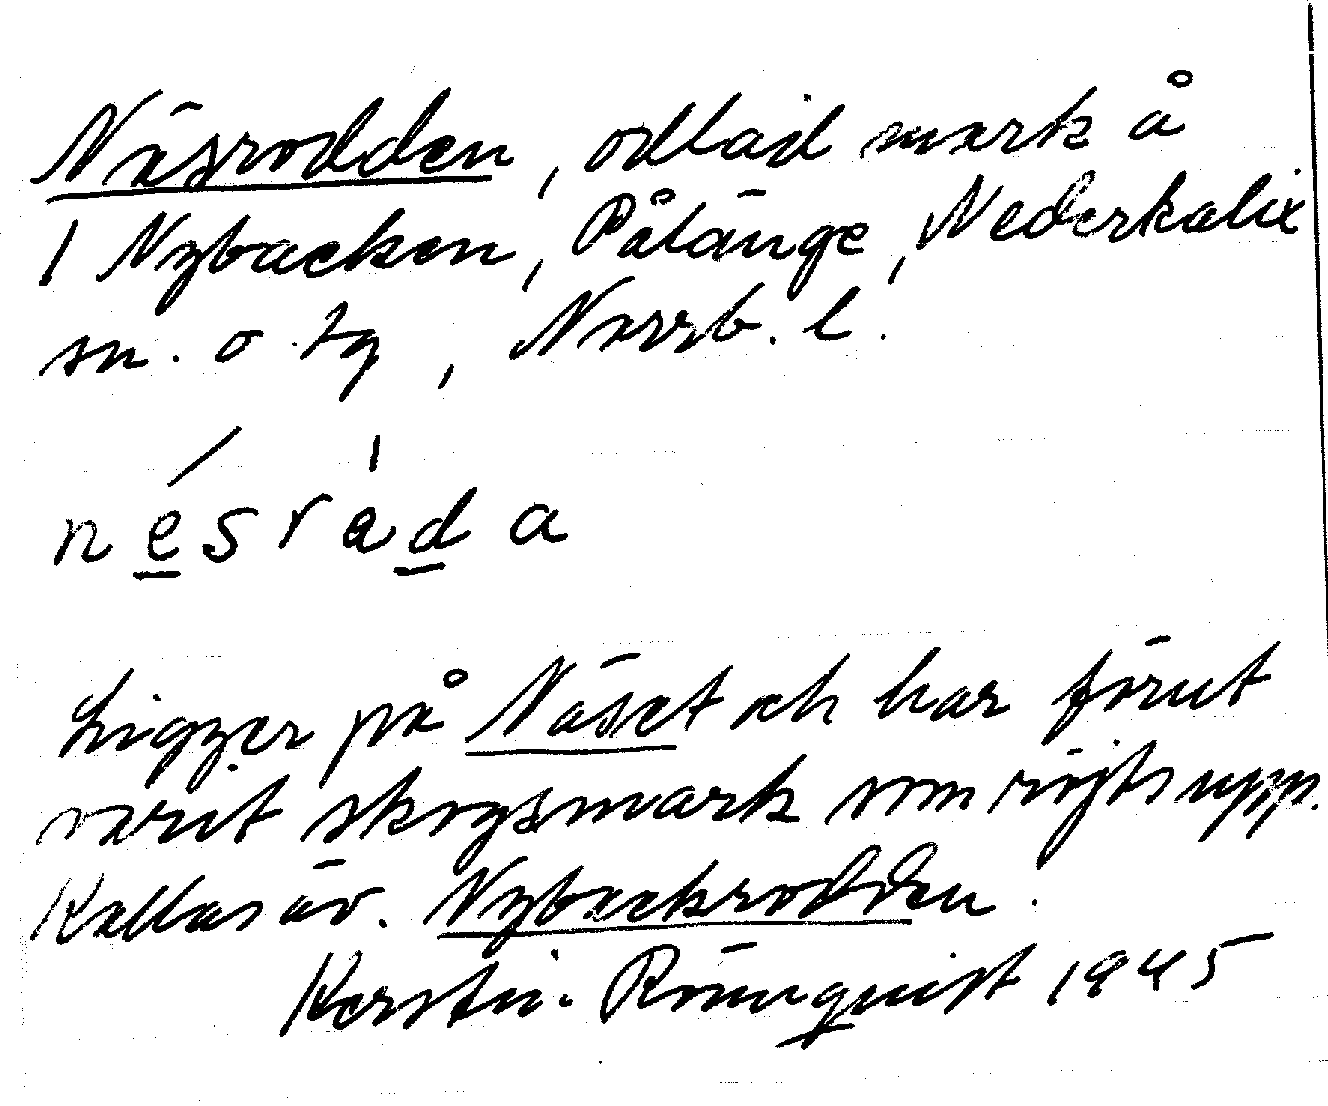 Näsrodden, odlad mark å
1 Nybacken, Pålänge, Nederkalix
sn. o tg, Norrb. l.
nésráda
Ligger på Näset och har förut
varit skogsmark som röjts upp.
Kallas äv. Nybackrodden.
Kerstin Rönnquist 1945